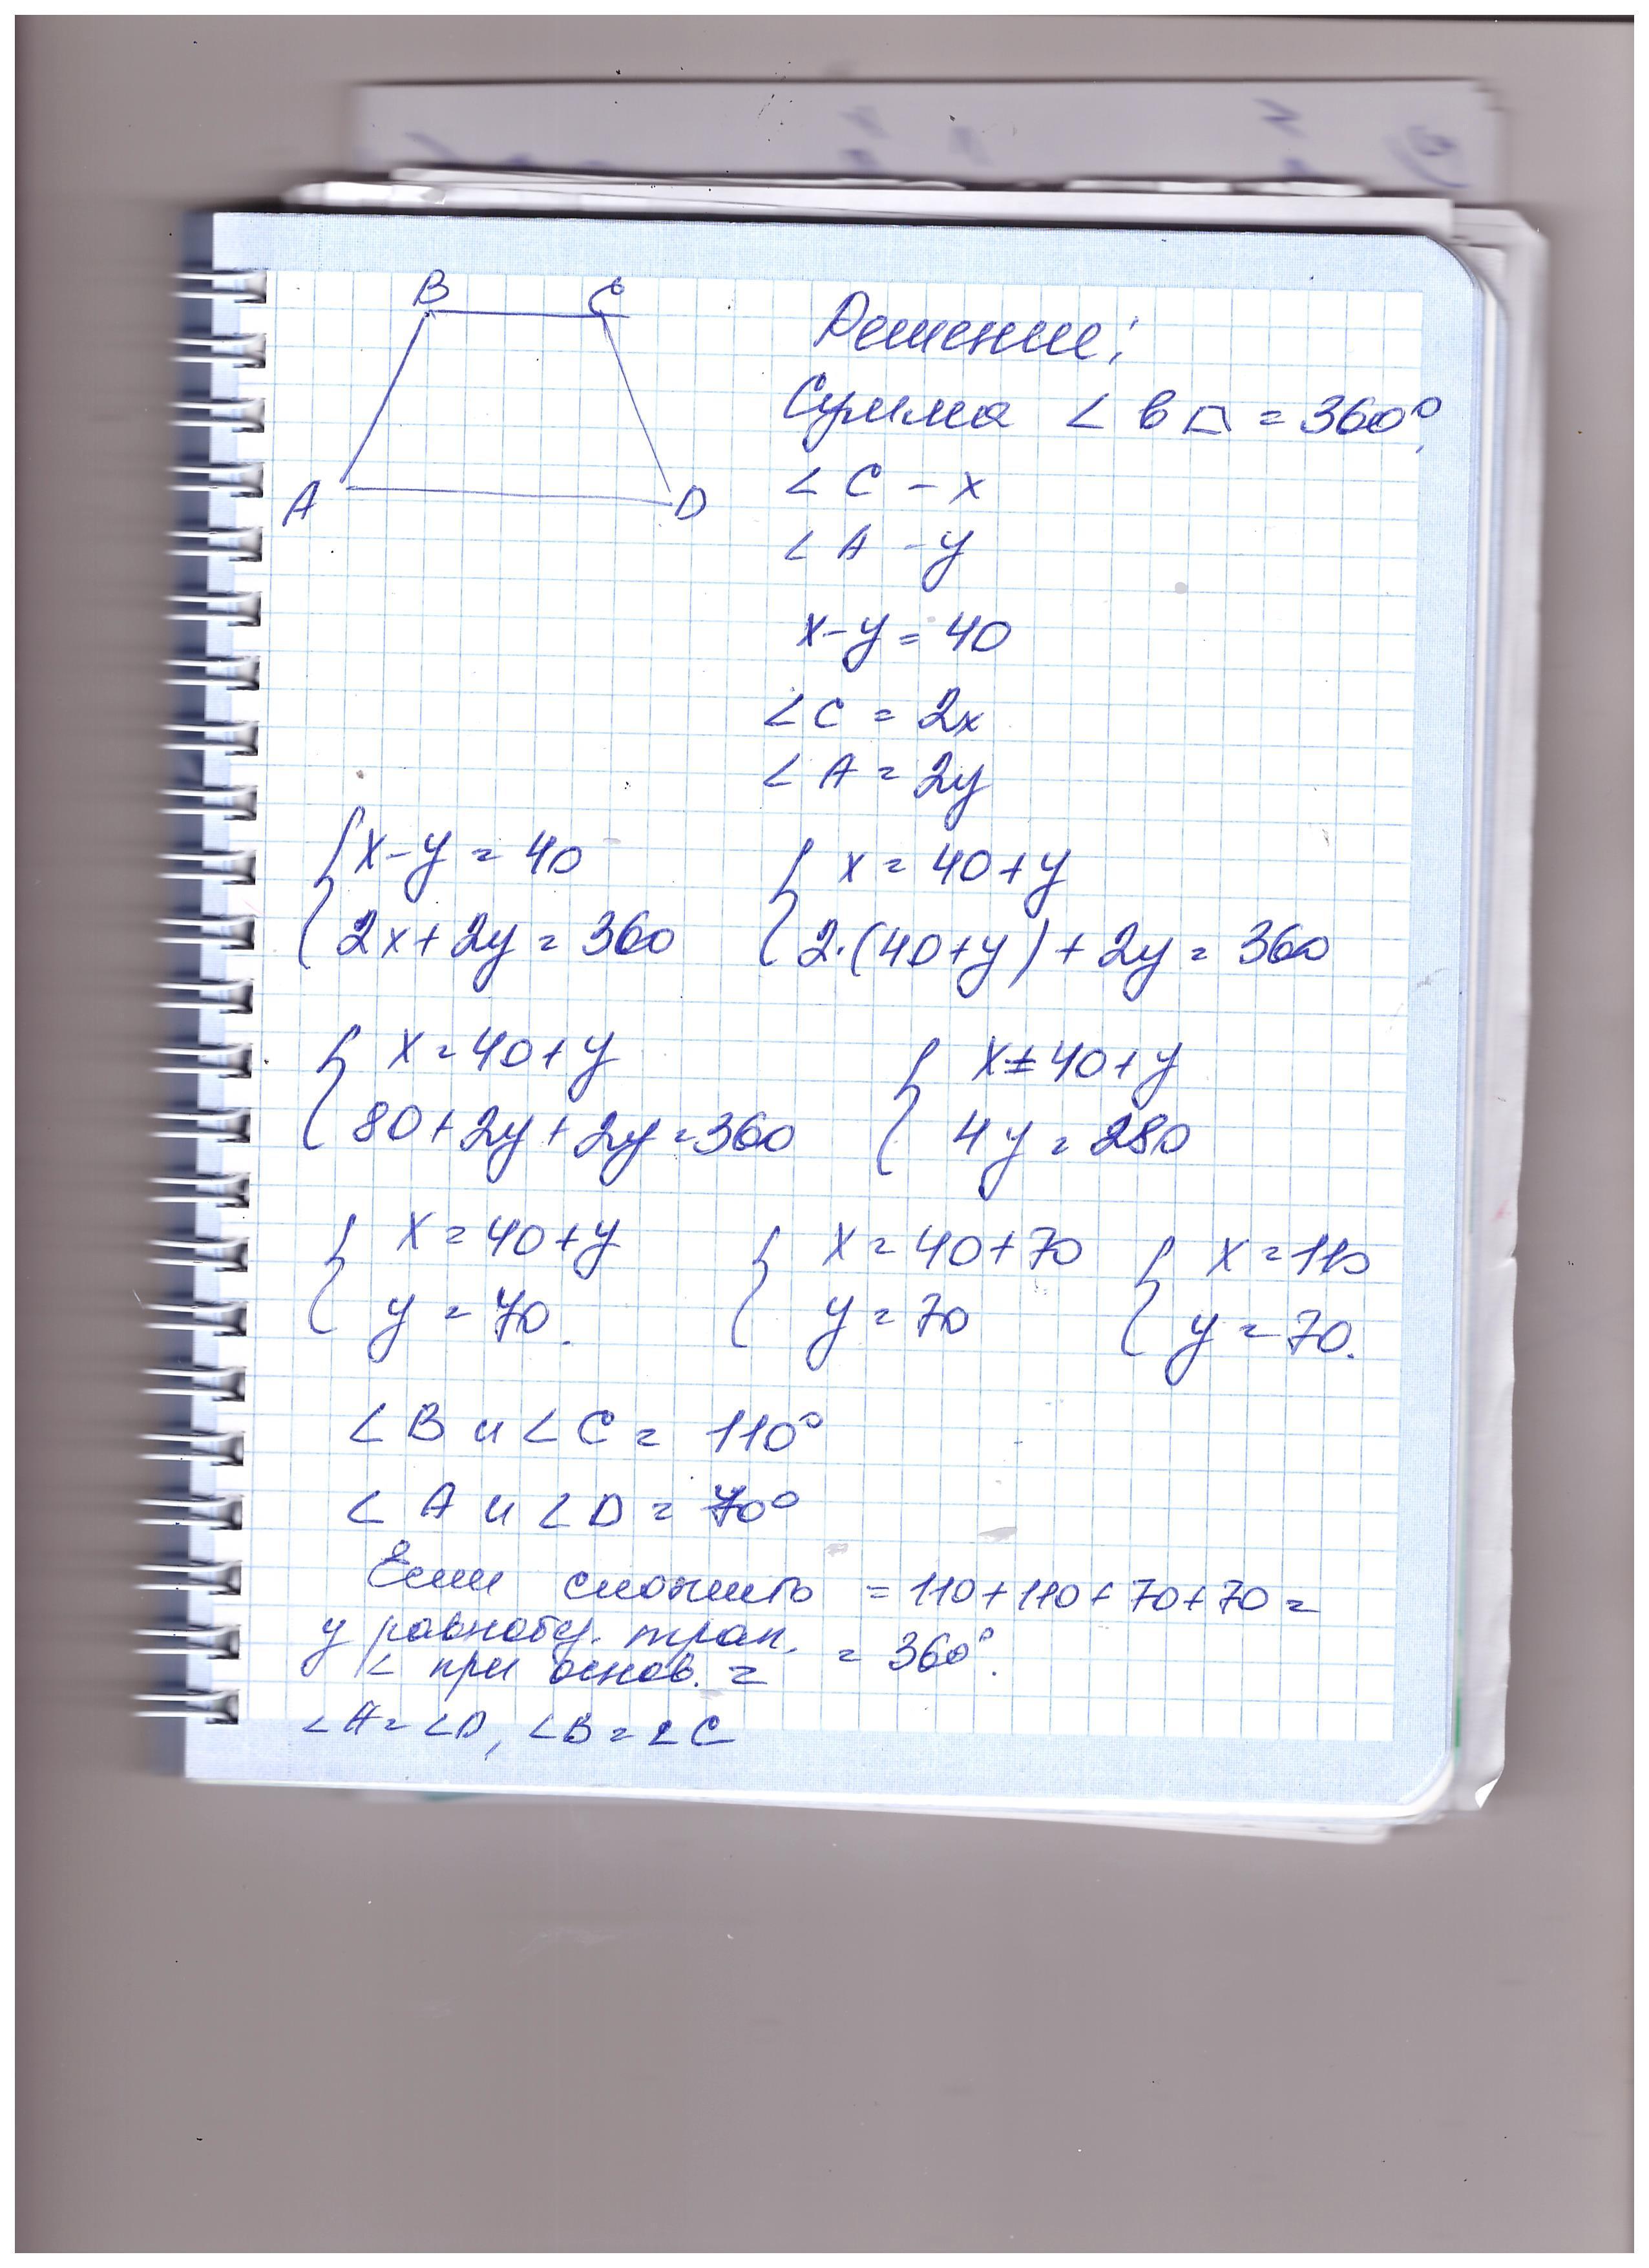 B C
A D
Решение:
Сумма ∠ в ⏢ = 360°
∠ C – x
∠ A – y
x – y = 40
∠ C = 2x
∠ A = 2y
{ x – y = 40 { x = 40 + y
{ 2x + 2y = 360 { 2·(40+y) + 2y = 360
{ x = 40 + y { x = 40 + y
{ 80 + 2y + 2y = 360 { 4y = 280
{ x = 40 + y { x = 40 + 70 { x = 110
{ y = 70. { y = 70 { y = 70.
∠ B и ∠ C = 110°
∠ A и ∠ D = 70°
Если сложить = 110 + 110 + 70 + 70 =
у равнобед. трап. = 360°.
∠ при основ. =
∠A = ∠D, ∠B = ∠C